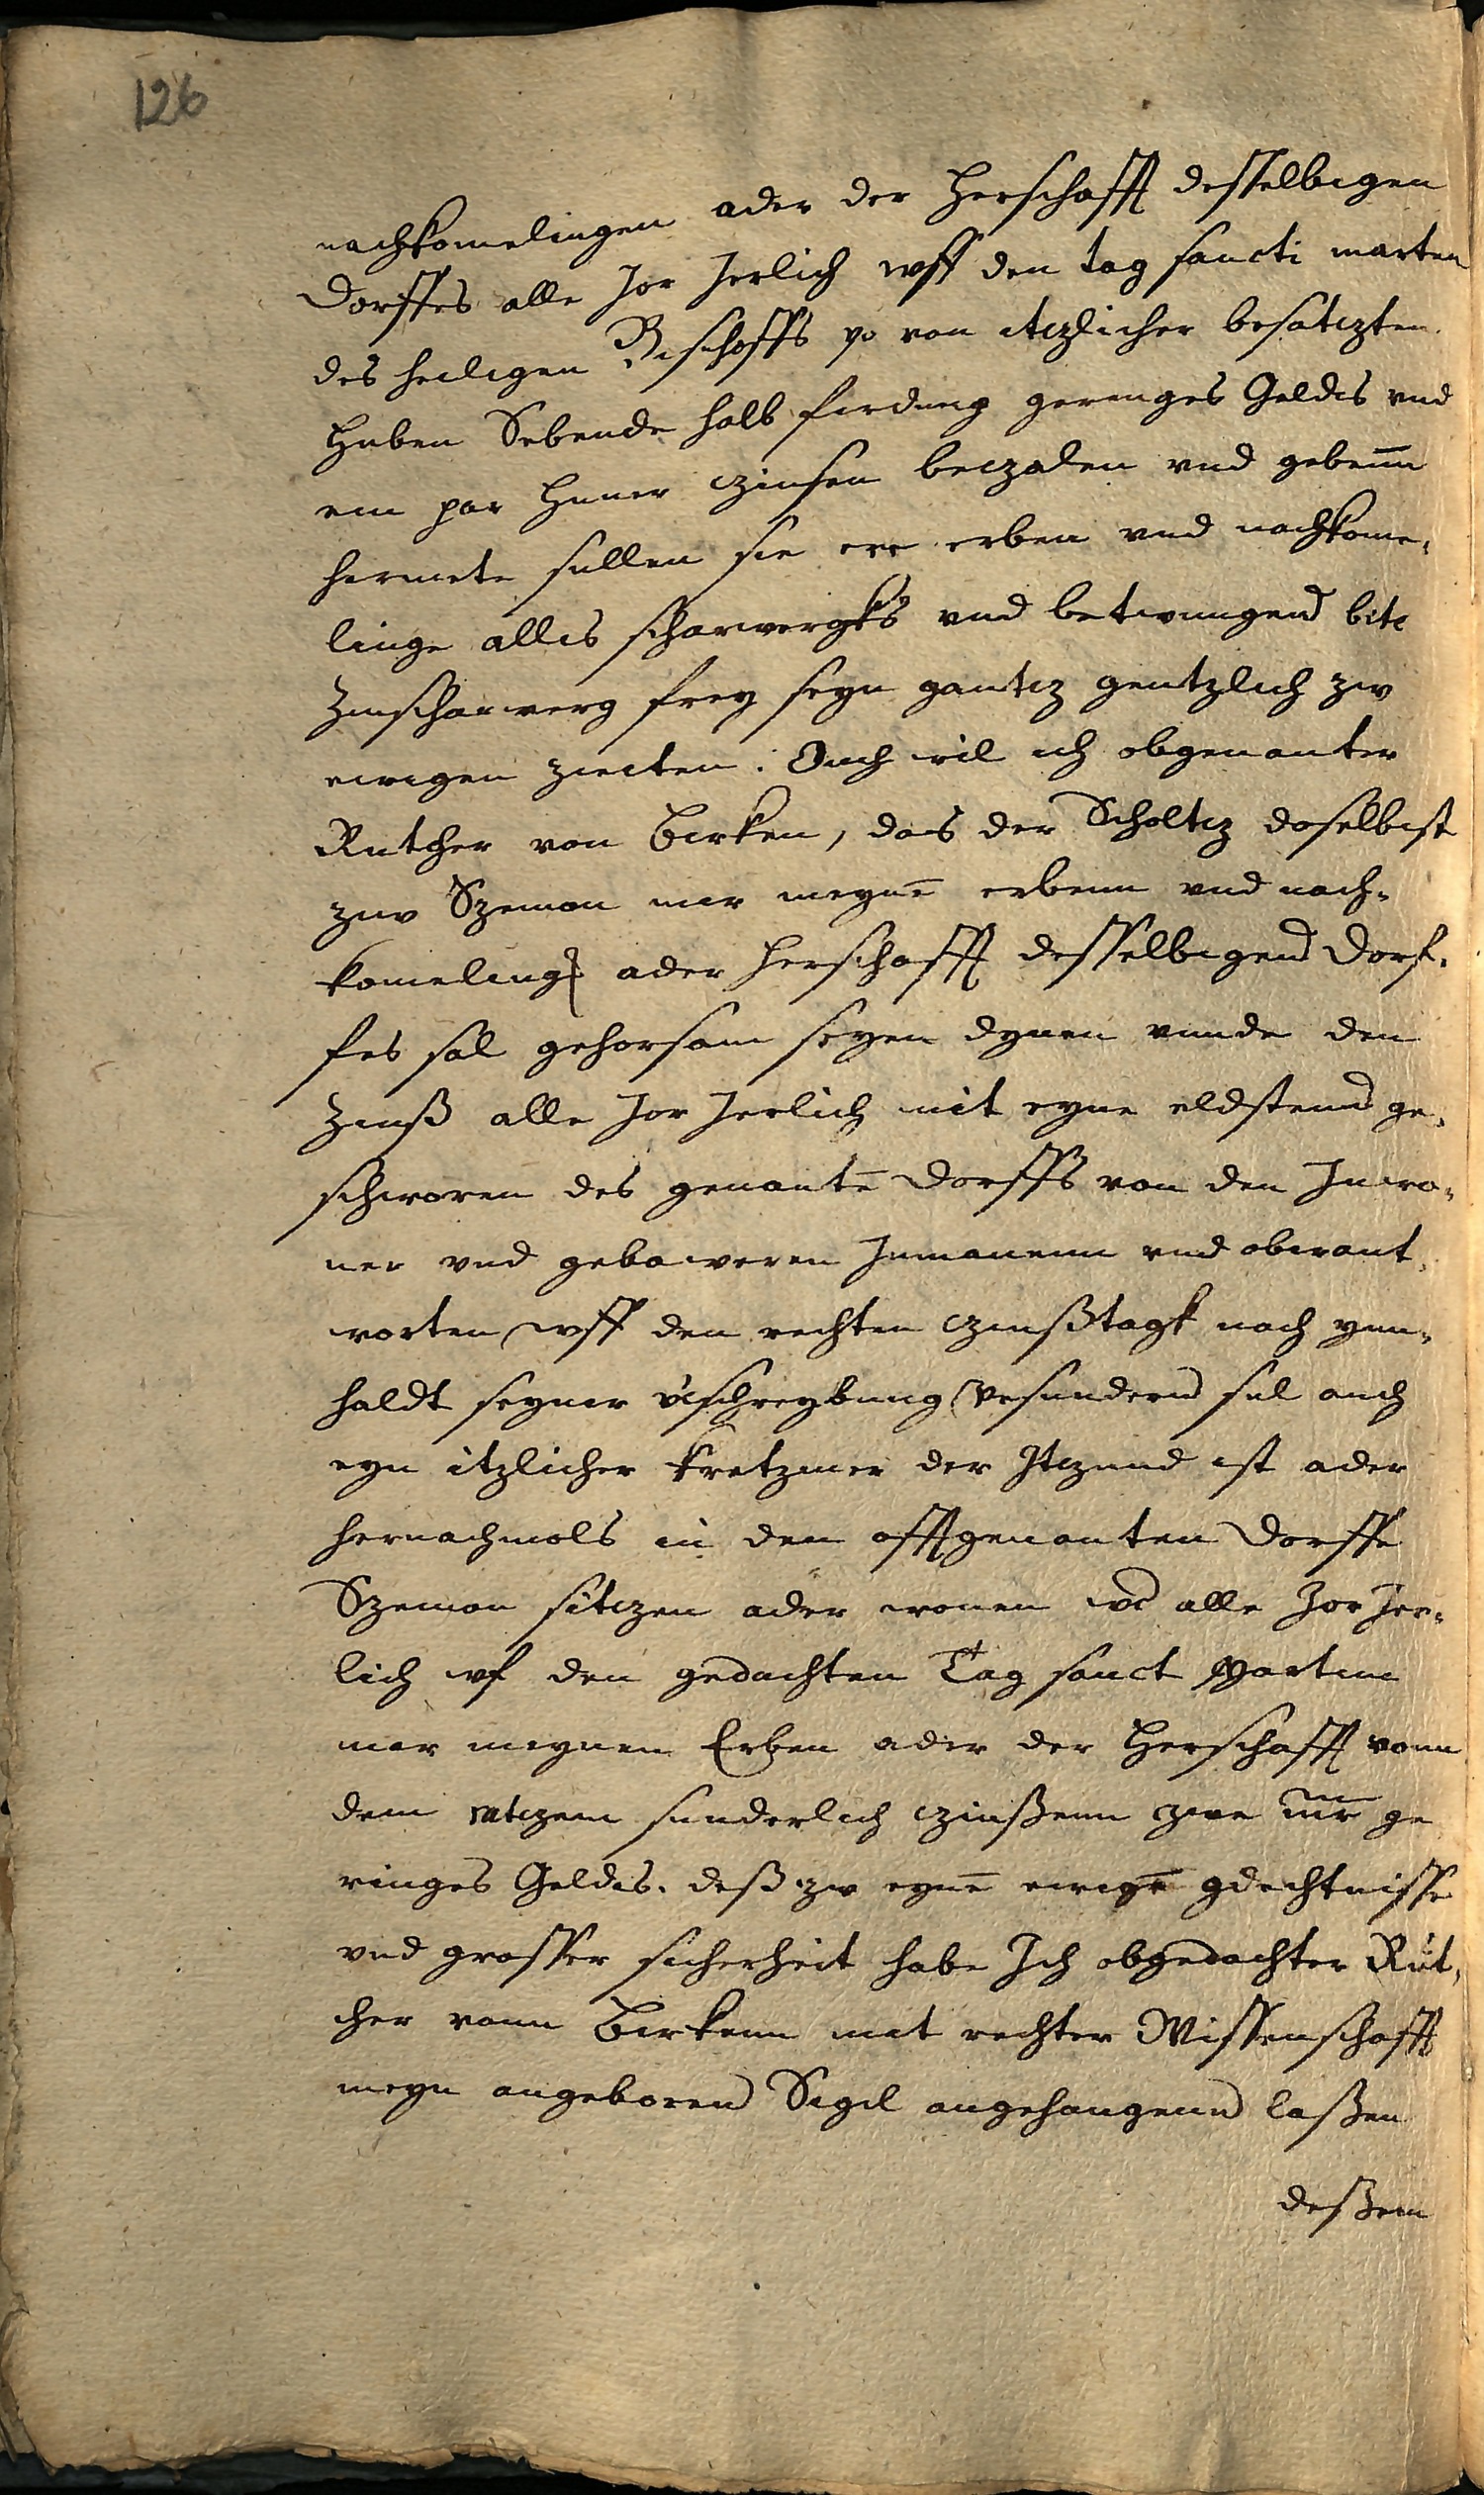 126
nachkomelingen ader der Herschafft desselbigen
Dorffes alle Jor Jerlich wff den tag sancti marten
des heiligen Bischoffs yo von itczlicher besatczten
Huben Sebende halb firdung geringes Geldis vnd
ein par Huner czinsen beczalen vnd gebenn
hirmete sullen sie ere erben vnd nachkome-
linge alles scharwergks vnd betwungend bite
Zinscharwerg frey seyn gantcz gentzlich zw
ewigen zeieten. Ouch wil ich obgenanter
Rutcher von Birken, das der Scholtcz doselbist
zuw Szeman mir meyne erbenn vnd noch-
komeling ader Herschafft desselbigend Dorf-
fes sal gehorsam seyen dynen vnnde den
Zinß alle Jor Jerlich mit eyne eldstend ge-
schworen des genante Dorffs von den Inwo-
ner vnd gebaweren Inmanenn vnd obirant-
worten wff den rechten czinßtagk noch ynn-
haldt seyner vschreybung Besundernd sal auch
eyn itzlicher kretzmer der Itczund ist ader
hernachmols in den offtgenanten Dorffe
Szeman sitczen ader wonen wd alle Jor Jer-
lich vf den gedachten Tag sanct Martini
mir meynen Erben ader der Herschafft vonn
dem sunderlich czinßenn zwe mr ge
ringes Geldis. deß zw eyne ewige gdechtnisse
vnd grosser sicherheit habe Ich obgedachter Rut-
cher vonn Birkenn mit rechter Wissenschafft
meyn angeborend Sigil angehangend laßen
deßem